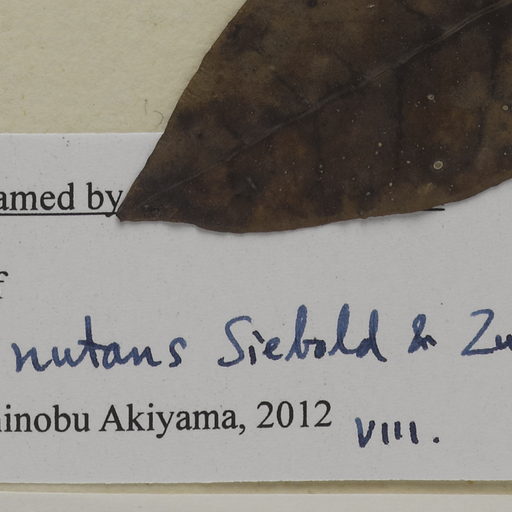 amed by
f
nutans Siebold & Zu
hinobu Akiyama, 2012 VIII.